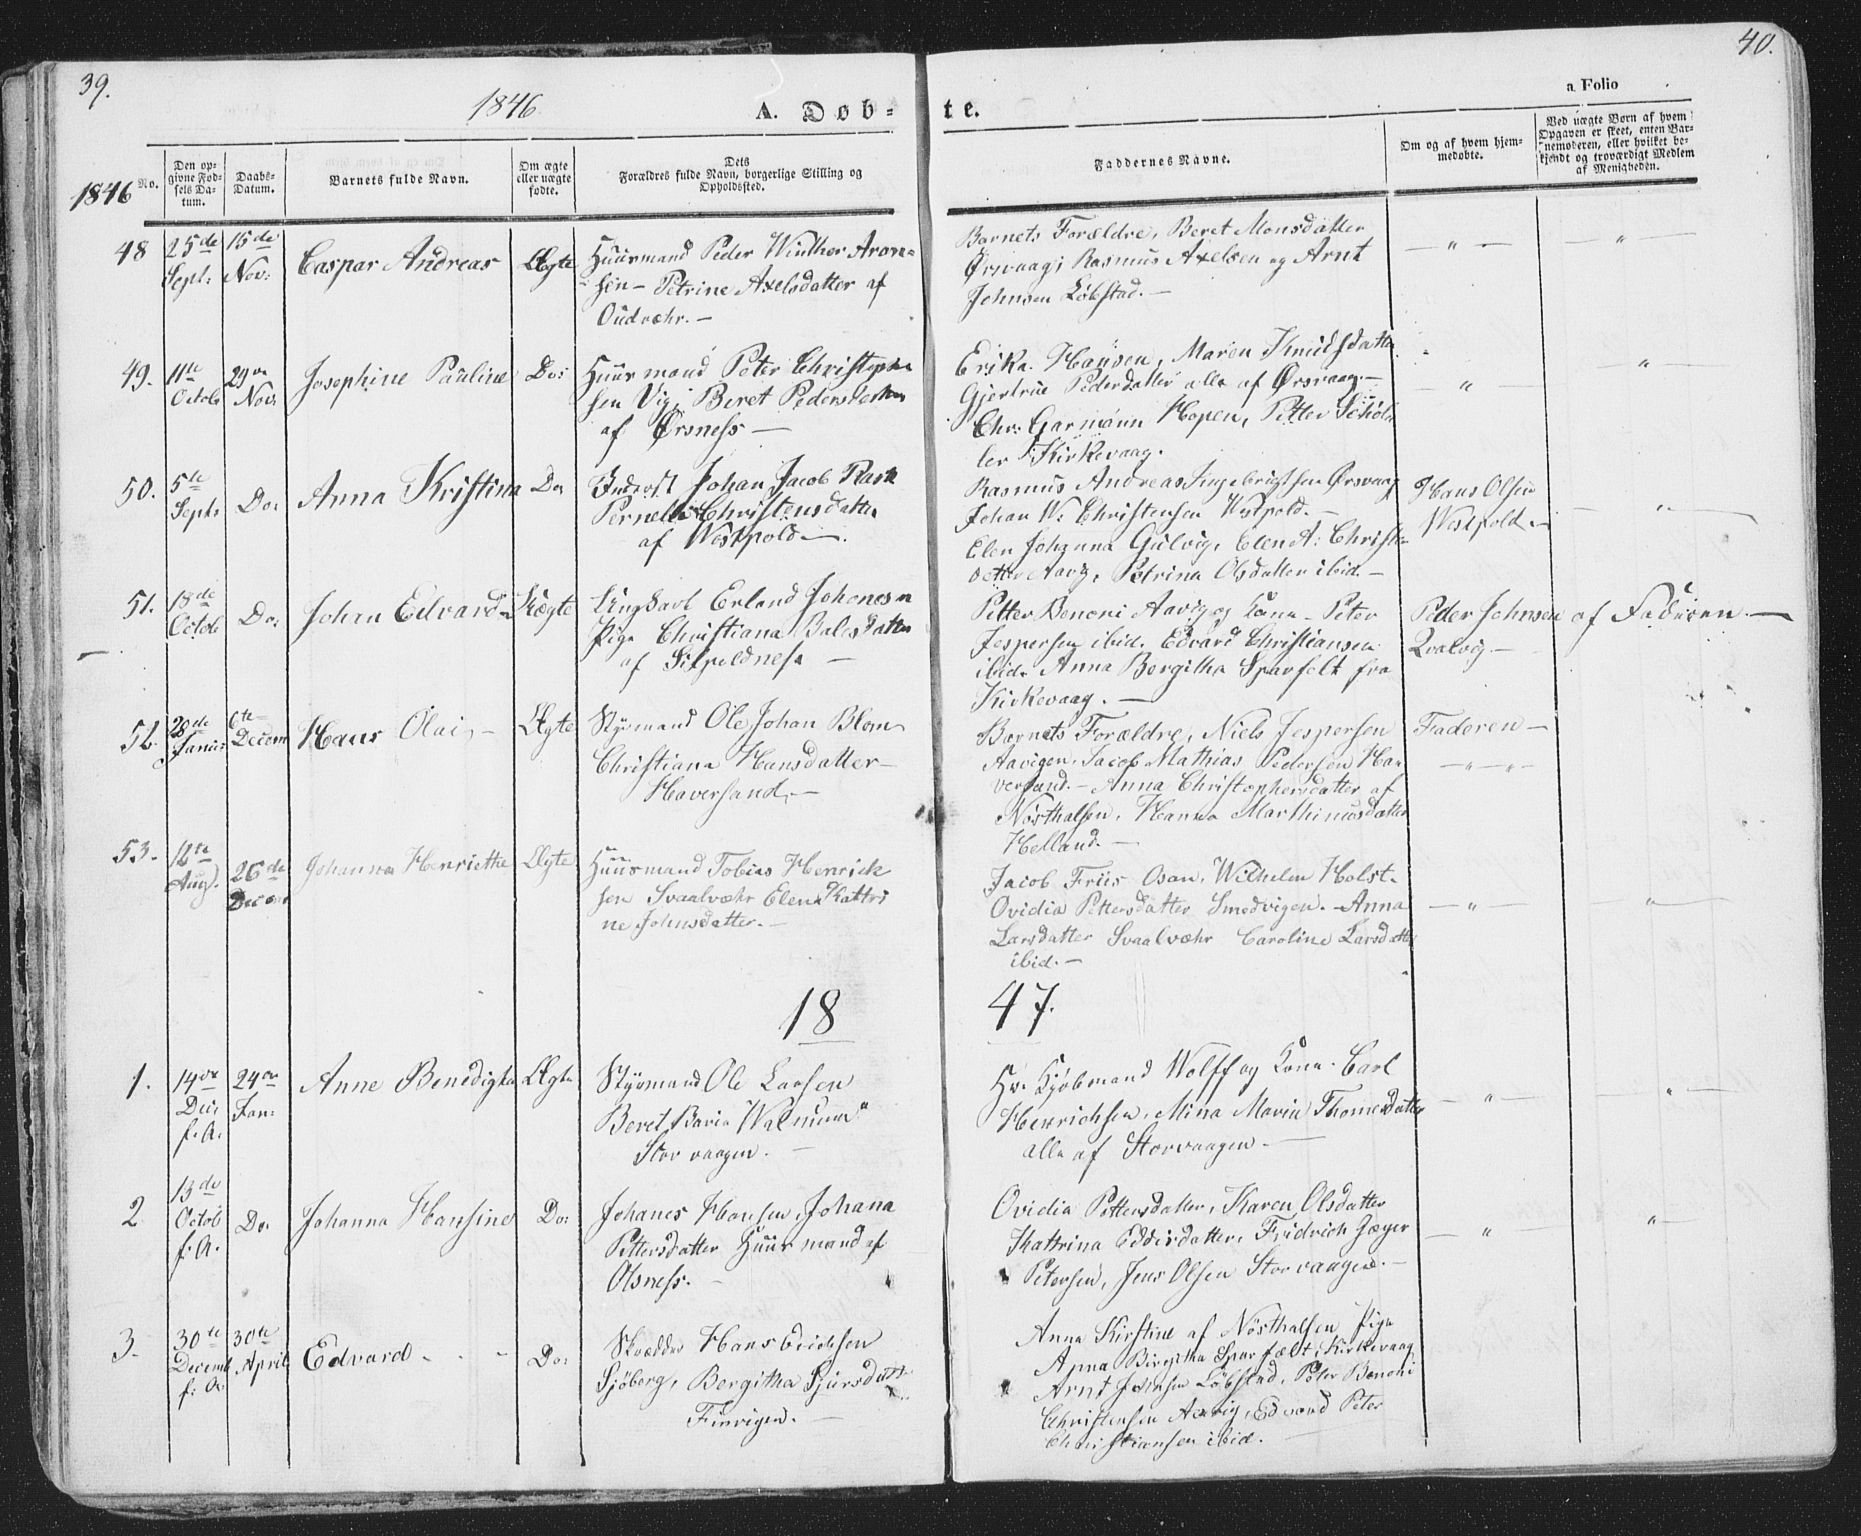 39.
40.
1846
A. Døb-
te.
a Folio
1846
No.
Den op-
givne Fød-
sels Da-
tum.
Daabs-
Datum.
Barnets fulde Navn.
Om ægte
eller uægte
fødte.
Dets
Forældres fulde Navn, borgerlige Stilling og
Opholdssted.
Faddernes Navne.
Om og af hvem hjem-
medøbte.
Ved uægte Børn af hvem
Opgaven er skeet, enten Bar-
nemoderen, eller hvilket be-
kjendt og troværdigt Medlem
af Menigheden.
48
25de
Sept:
15de
Nov:
Caspar Andreas
Ægte
Huusmand Peder Winther Aron-
sen - Petrine Axelsdatter af
Oudvæhr. -
Barnets Forældre, Beret Monsdatter
Ørsvaag, Rasmus Axelsen og Arnt
Johnsen Løbstad. -
49.
11te
Octob
29de
Nov:
Josephine Pauline
Do:
Huusmand Peter Christoph-
sen Vig, Beret Pedersdatter
af Ørsness -
Erika Hansen, Maren Knudsdatter
Gjertrue Pedersdatter alle af Ørsvaag. -
Chr: Garmann Hopen, Petter Schøl-
ler Kirkevaag.
50.
5te
Sept:
Do:
Anna Kristina
Do:
Inderst Johan Jacob Rask
Pernelle Christensdatter
af Westpold -.
Rasmus Andreas Ingebrigtsen Ørsvaag
Johan W: Christensen Westpold. -
Elen Johanna Gulvig, Elen A: Christen-
datter Aavig, Petrina Olsdatter ibid. -
Hans Olsen
Westpold -
51.
18de
Octob
Do:
Johan Edvard
Uægte
Ungkarl Erland Johnesen
Pige Christiana Balesdatter
af Silpoldness -
Petter Benoni Aavig og Kone - Peter
Jespersen ibid. Edvard Christiansen
ibid. Anna Bergitha Sparfelt fra
Kirkevaag. -
Peder Johnsen
Qvalvig -
af Faderen. -
52.
28de
Junii
6te
Decem
Hans Olai, -
Ægte
Styrmand Ole Johan Blom
Christiana Hansdatter -
Haversand, -
Barnets Forældre, Niels Jespersen
Aavigen. Jacob Mathias Pedersen Ha-
versand. - Anna Christophersdatter af
Nøsthalsen, Hanna Marthinusdatter
Helland. -
Faderen -
53.
12te
Aug.
26de
Decem
Johanna Henriethe
Ægte
Huusmand Tobias Henrick
sen Svaalvæhr Elen Kattri
ne Johnsdatter. -
Jacob Friis Osan, Wilhelm Holst.
Ovidia Pettersdatter Smedvigen. - Anna
Larsdatter Svaalvæhr Caroline Larsdatter
ibid. -
18
47.
1.
14de
Dec:
f. A.
24de
Jan:
Anne Benedigta
Ægte
Styrmand Ole Larsen
Beret Maria Walnum
Storvaagen. -
Hr. Kjøbmand Wolff og Kone. Carl
Henrichsen, Mina Maria Thomesdatter
alle af Storvaagen. -
2
13de
Octob
f. A.
Do.
Johanna Hansine
Do:
Johanes Hansen Johana
Pettersdatter Huusmand af
Olsness. -
Ovidia Pettersdatter, Karen Olsdatter
Kattrina Eddisdatter, Fridrich Jæger
Petersen, Jens Olsen Storvaagen. -
3.
30te
Decemb
f: A
30te
April
Edvard
Do:
Skrædder Hans Erichsen
Sjøberg, Bergitha Sjursdatt
Finvigen. -
Anna Kirstine af Nøsthalsen Pige
Anna Birgitha Sparfælt, Kirkevaag
Arnt Johnsen Løbstad, Peter Benoni
Christensen Aavig, Edvard Peter
Christiansen ibid.